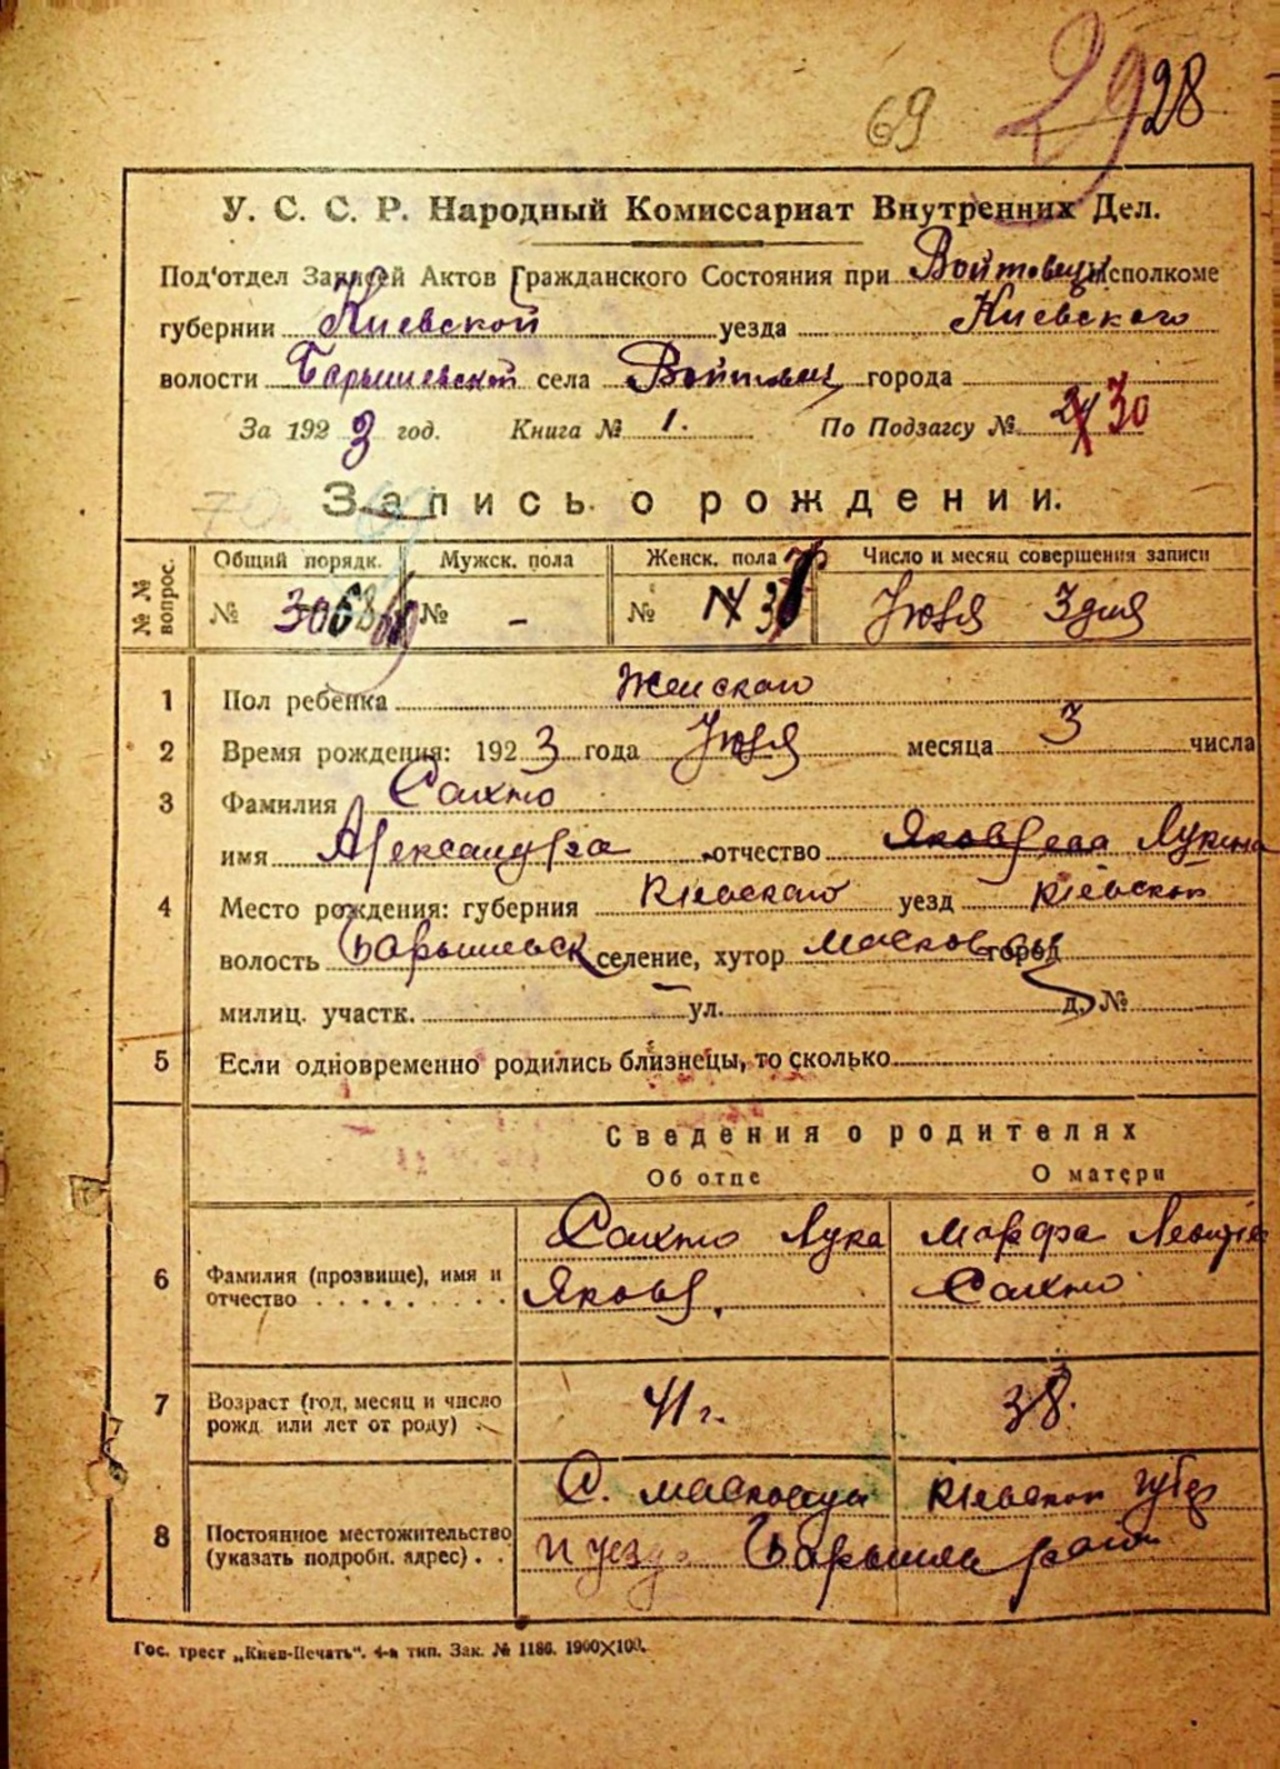 69 29 28
У. С. С. Р. Народный Комиссариат Внутренних Дел.
Под'отдел Записей Актов Гражданского Состояния при Войтовец Исполкоме
губернии Киевской уезда Киевского
волости Барышевской села Войтовец города
За 1923 год. Книга № 1. По Подзагсу № 30
Запись о рождении.
№№ вопрос. Общий порядк. Мужск. пола Женск. пола Число и месяц совершения записи
№ № - № Июля 3 дня
1 Пол ребенка Женского
2 Время рождения: 1923 года Июля месяца 3 числа
3 Фамилия Сахно
имя Александра отчество Яковлева Лукина
4 Место рождения: губерния Киевского уезд Киевской
волость Барышевск селение, хутор город
милиц. участк. ул. д. №
5 Если одновременно родились близнецы, то сколько
Сведения о родителях
Об отце О матери
6 Фамилия (прозвище), имя и отчество
Сахно Лука
Яковл.
Марфа
Сахно
7 Возраст (год, месяц и число рожд. или лет от роду) 41 г. 38.
8 Постоянное местожительство (указать подробн. адрес)
С. Киевской губер
и уезд
Гос. трест „Киев-Печать“. 4-я тип. Зак. № 1186. 1900×100.